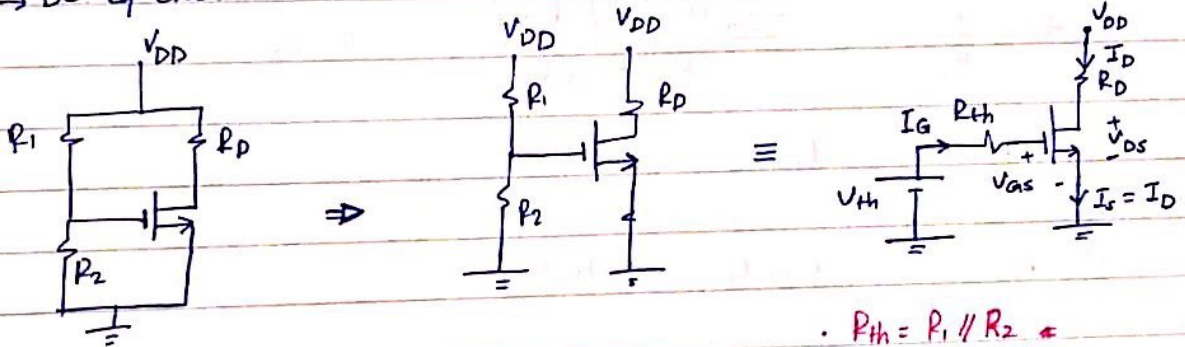 V_DD
R1
R_D
R2
V_DD
V_DD
R1
R_D
R2
≡
V_DD
I_D
R_D
I_G R_th
+
V_DS
-
+
V_GS -
V_th
I_s = I_D
. R_th = R_1 // R_2